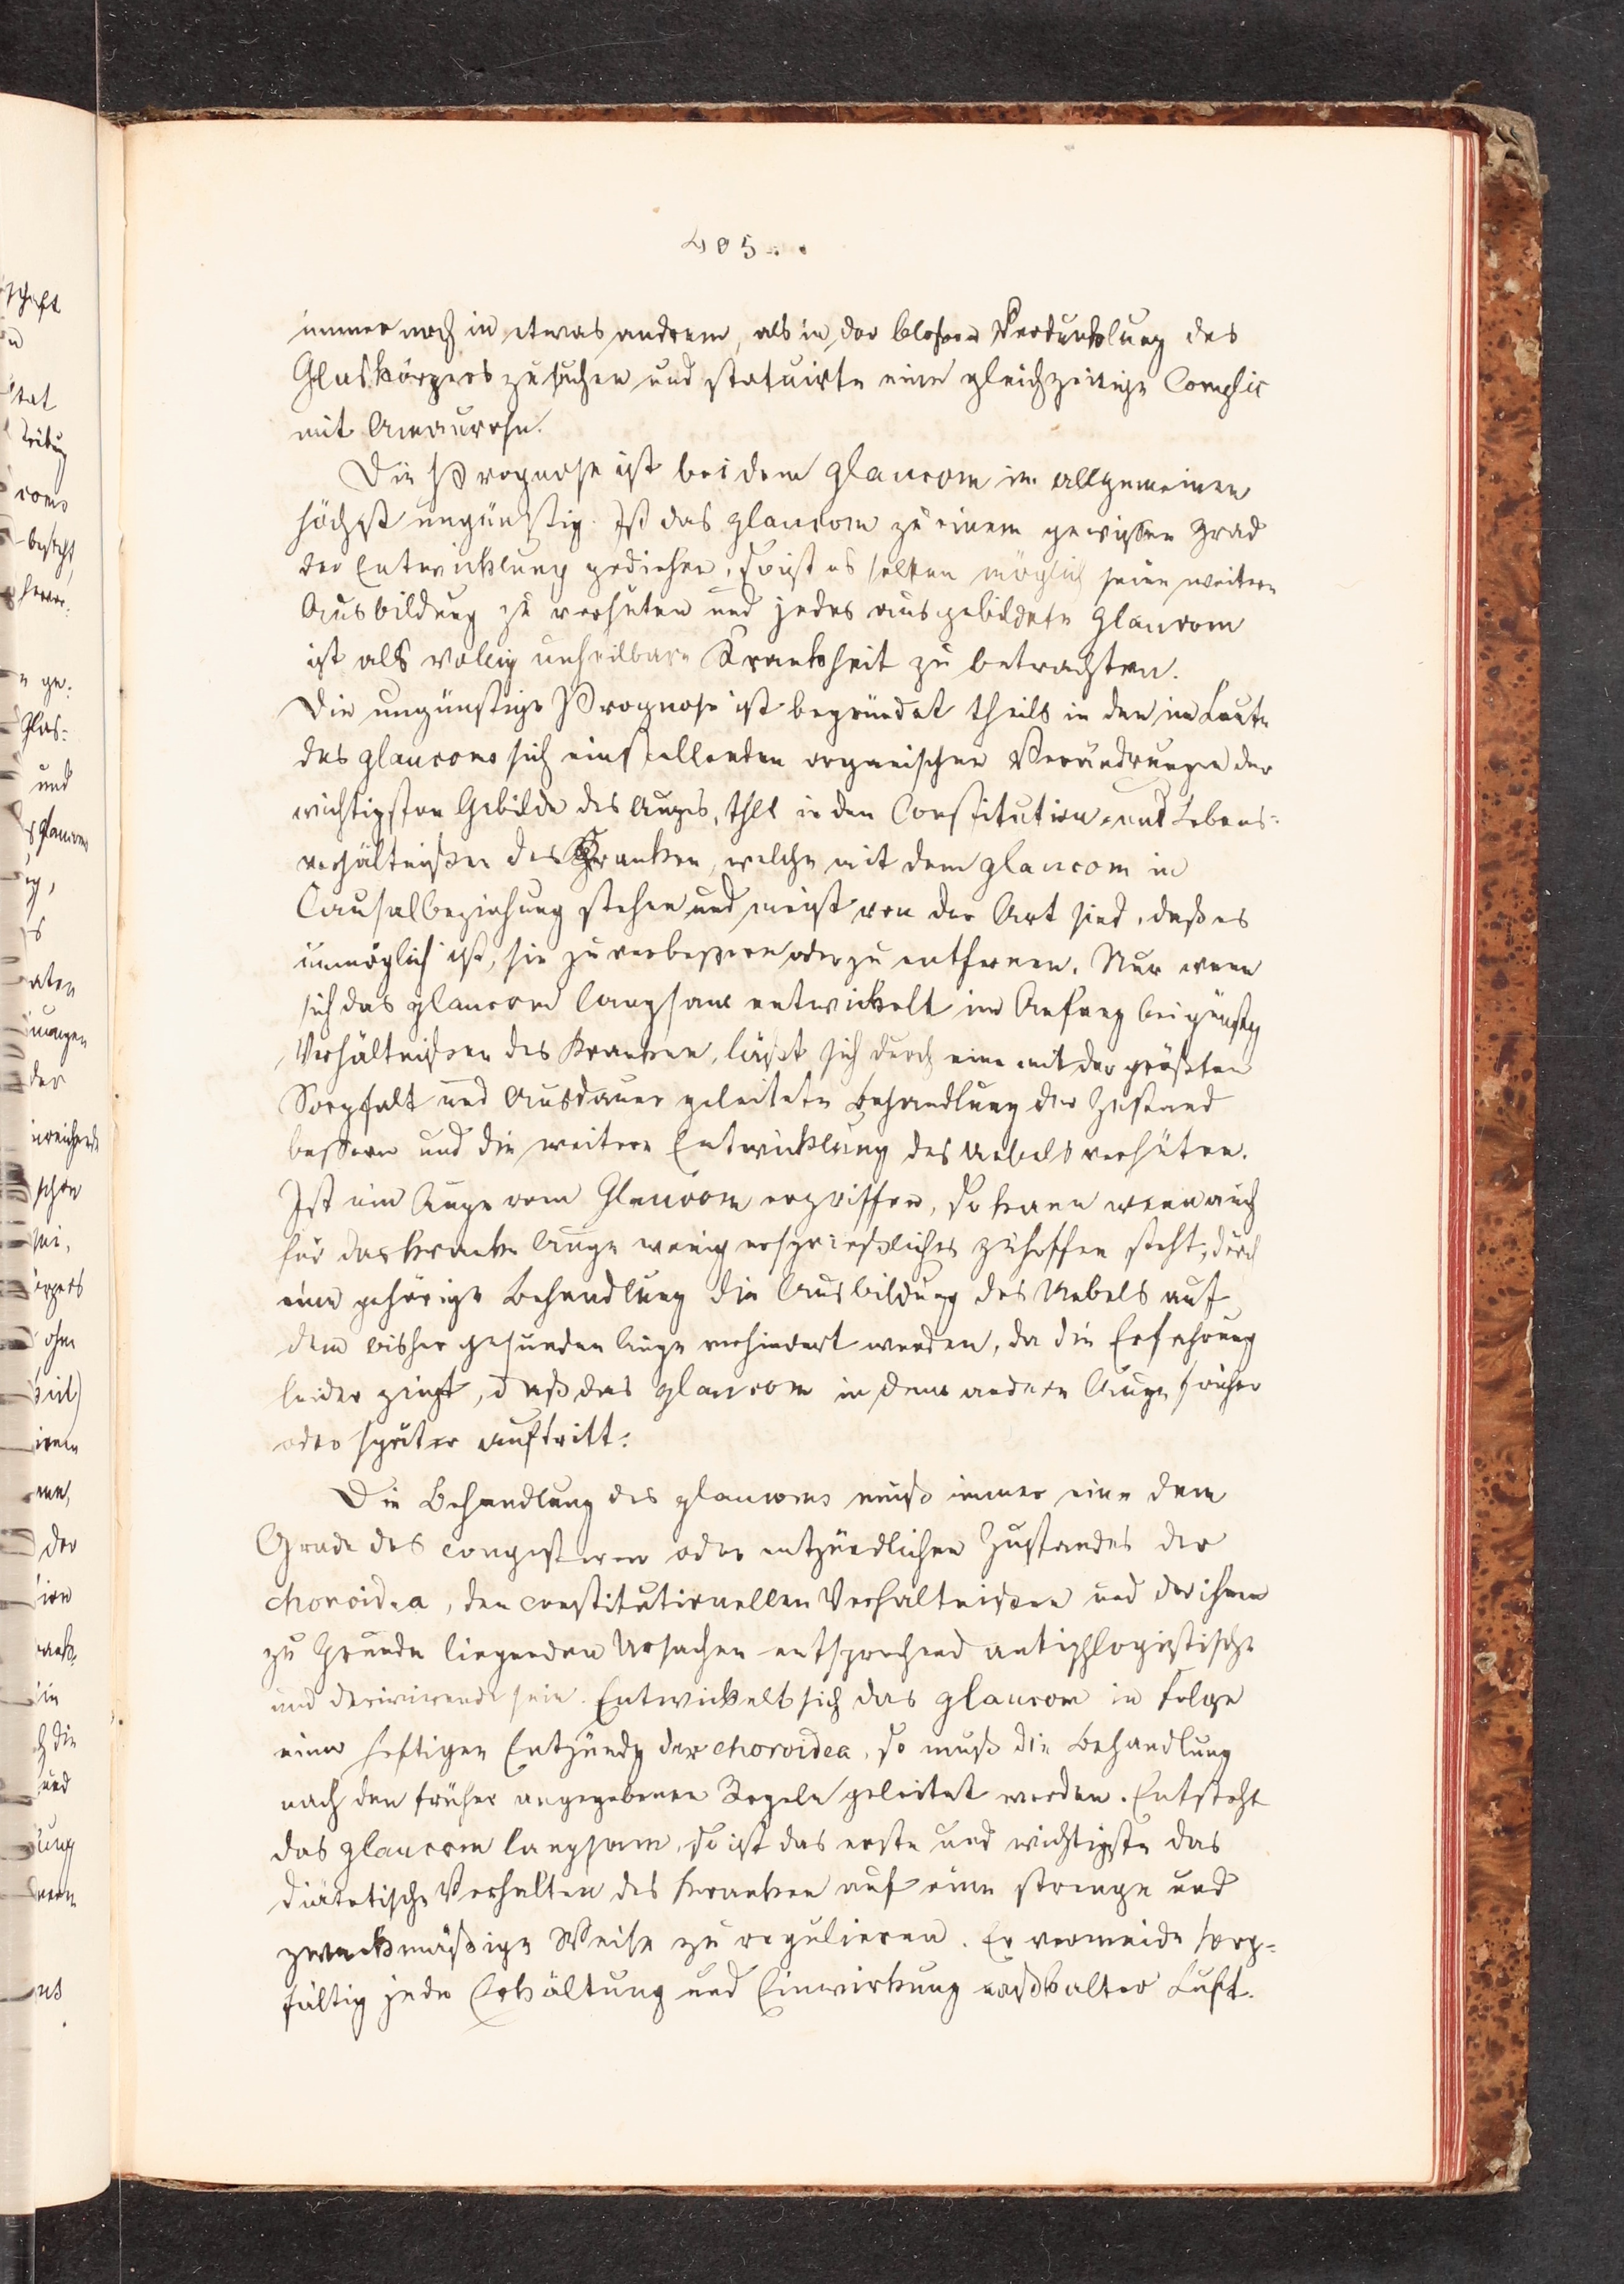 405.
immer noch in etwas andrem, als in der bloßen Verdunklung des
Glaskörpers zu suchen und statuirte eine gleichzeitige Complic
mit Amaurose.
Die Prognose ist bei dem Glaucom im allgemeinen
höchst ungünstig. Ist das Glaucom zu einem gewissen Grad
der Entwicklung gediehen, so ist es selten möglich seine weitere
Ausbildung zu verhüten und jedes ausgebildete Glaucom
ist als völlig unheilbare Krankheit zu betrachten.
Die ungünstige Prognose ist begründet theils in den im Laufe
des Glaucoms sich einstellenden organischen Verändrungen der
wichtigsten Gebilde des Auges, thls in den Constitution- und Lebens-
verhältnißen des Kranken, welche mit dem Glaucom in
Causalbeziehung stehen und meist von der Art sind, daß es
unmöglich ist, sie zu verbessern oder zu entfernen. Nur wenn
sich das Glaucom langsam entwickelt im Anfang bei günstg
Verhältnißen des Kranken, läßt sich durch eine mit der größten
Sorgfalt und Ausdauer geleitete Behandlung der Zustand
bessern und die weitere Entwicklung des Uebels verhüten.
Ist ein Auge vom Glaucom ergriffen, so kann wenn auch
für das kranke Auge wenig ersprießliches zu hoffen steht, durch
eine gehörige Behandlung die Ausbildung des Uebels auf
dem bisher gesunden Auge verhindert werden, da die Erfahrung
leider zeigt, daß das Glaucom in dem andern Auge früher
oder später auftritt.
Die Behandlung des Glaucoms muß immer eine dem
Grade des congestiven oder entzündlichen Zustandes der
choroidea, den constitutionellen Verhältnißen und der ihnen
zu Grunde liegenden Ursachen entsprechend antiphlogistische
und derivirende sein. Entwickelt sich das Glaucom in Folge
einer heftigen Entzündg der choroidea, so muß die Behandlung
nach den früher angegebenen Regeln geleitet werden. Entsteht
das Glaucom langsam, so ist das erste und wichtigste das
diätetische Verhalten des Kranken auf eine strenge und
zweckmäßige Weise zu regulieren. Er vermeide sorg-
fältig jede Erkältung und Einwirkung naßkalter Luft.